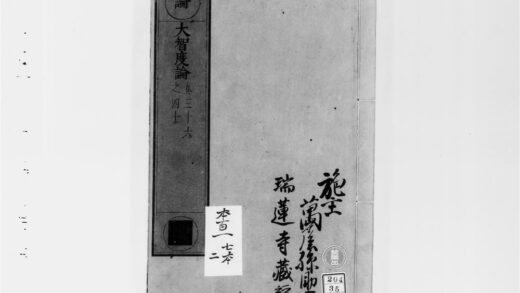 論
大智度論
自三十六
之四十
施主
萬屋孫助
瑞蓮寺藏
本百一
七本
二
204